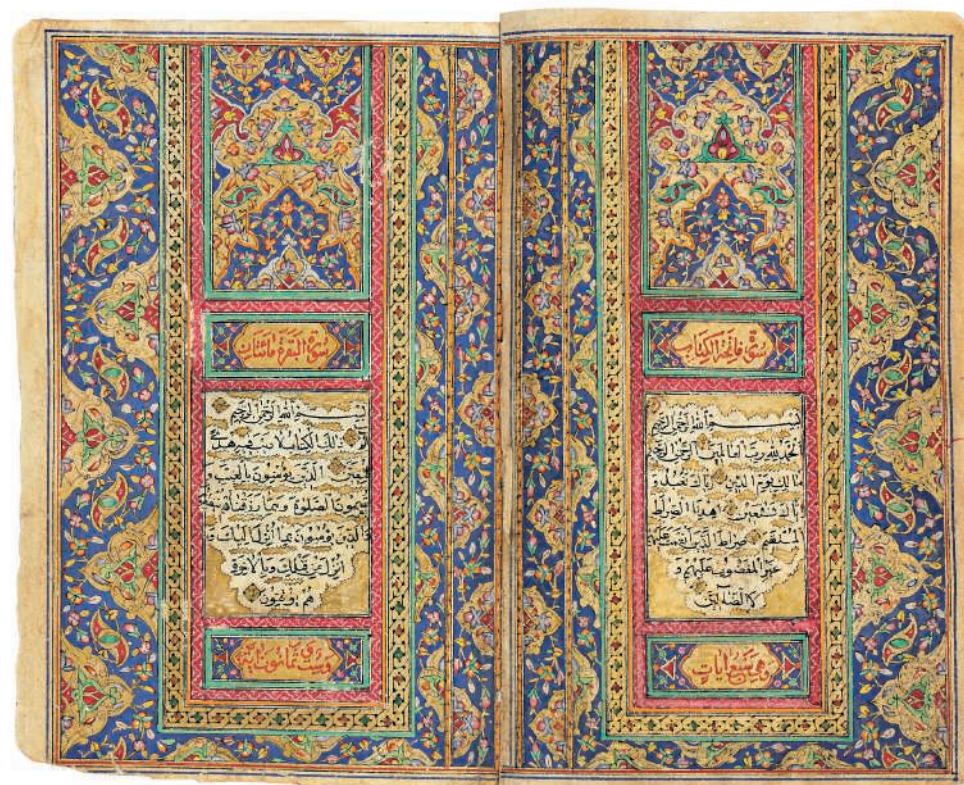 سورة فاتحة الكتاب
بسم الله الرحمن الرحيم
الحمد لله رب العالمين الرحمن الرحيم
مالك يوم الدين اياك نعبد و
اياك نستعين اهدنا الصراط
المستقيم صراط الذين انعمت عليهم
غير المغضوب عليهم و
لا الضالين
وهي سبع ايات
سورة البقرة مائتان
بسم الله الرحمن الرحيم
الم ذلك الكتاب لا ريب فيه هدى
للمتقين الذين يؤمنون بالغيب و
يقيمون الصلوة ومما رزقناهم
والذين يؤمنون بما انزل اليك و
انزل من قبلك وبالاخرة
هم يوقنون
وست وثمانون اية